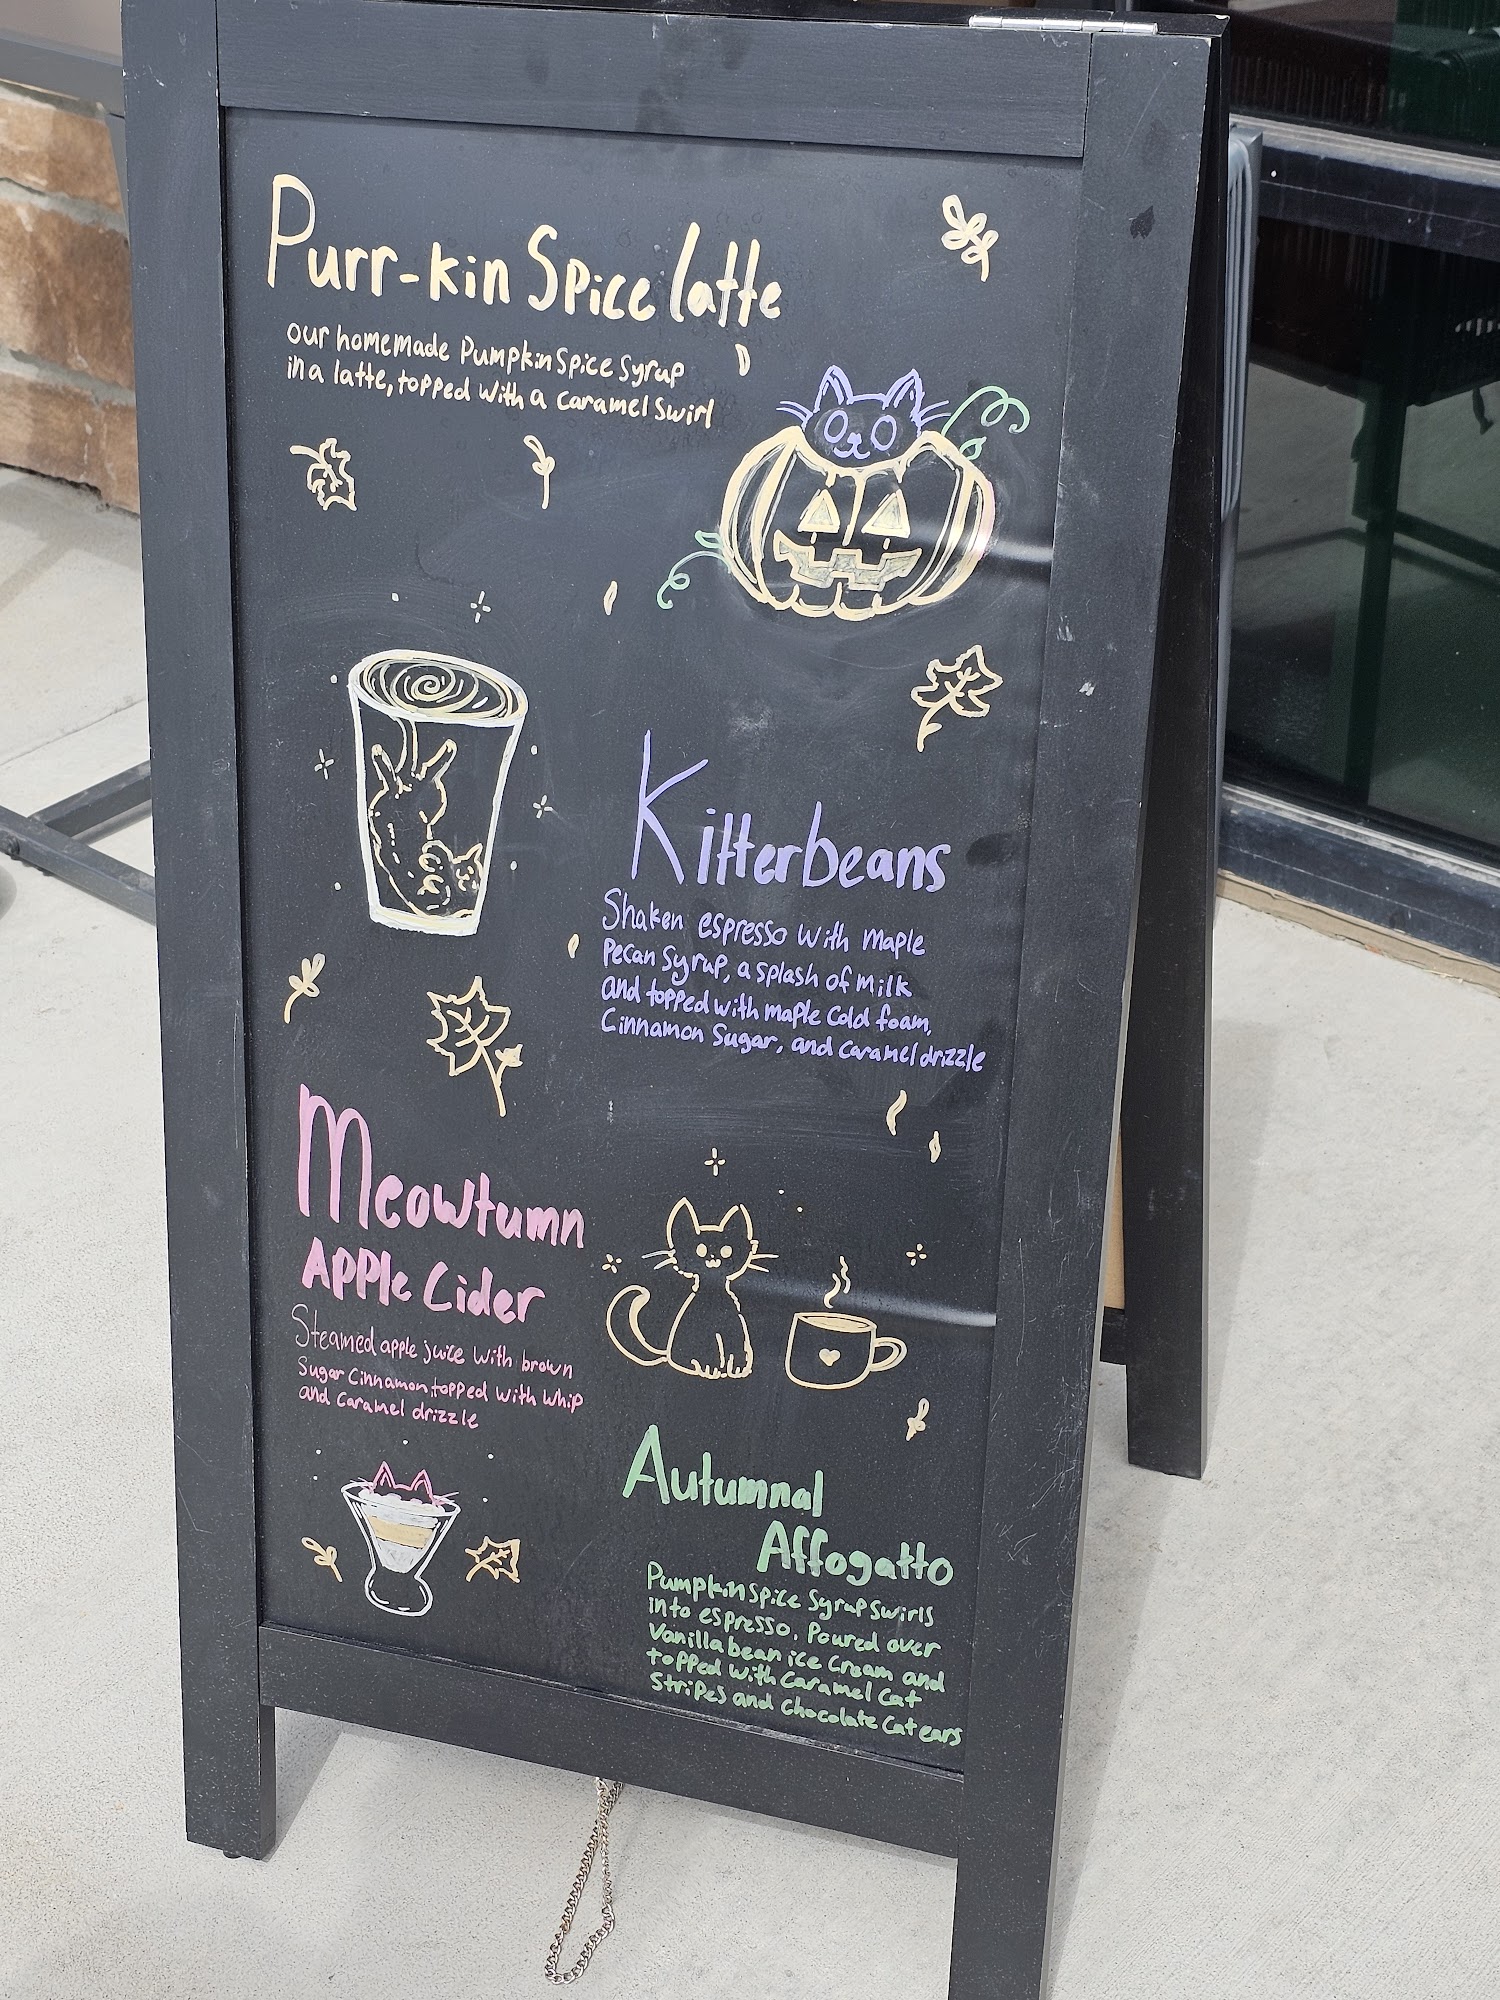 Purr-kin Spice latte
our homemade Pumpkin Spice Syrup
in a latte, topped with a caramel swirl
Kitterbeans
Shaken espresso with maple
Pecan Syrup, a splash of milk
and topped with maple cold foam,
Cinnamon Sugar, and caramel drizzle
Meowtumn
Apple Cider
Steamed apple juice with brown
Sugar Cinnamon, topped with whip
and caramel drizzle
Autumnal
Affogatto
Pumpkin Spice Syrup swirls
into espresso. Poured over
Vanilla bean ice cream and
topped with Caramel Cat
Stripes and Chocolate Cat ears